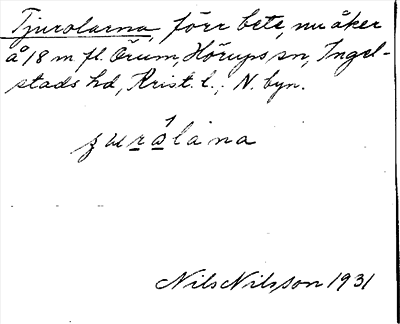 Tjurolarna, förr bete, nu åker
å 18 m fl. Örum, Hörups sn, Ingel-
stads hd, Krist. l.; N. byn.
Nils Nilsson 1931